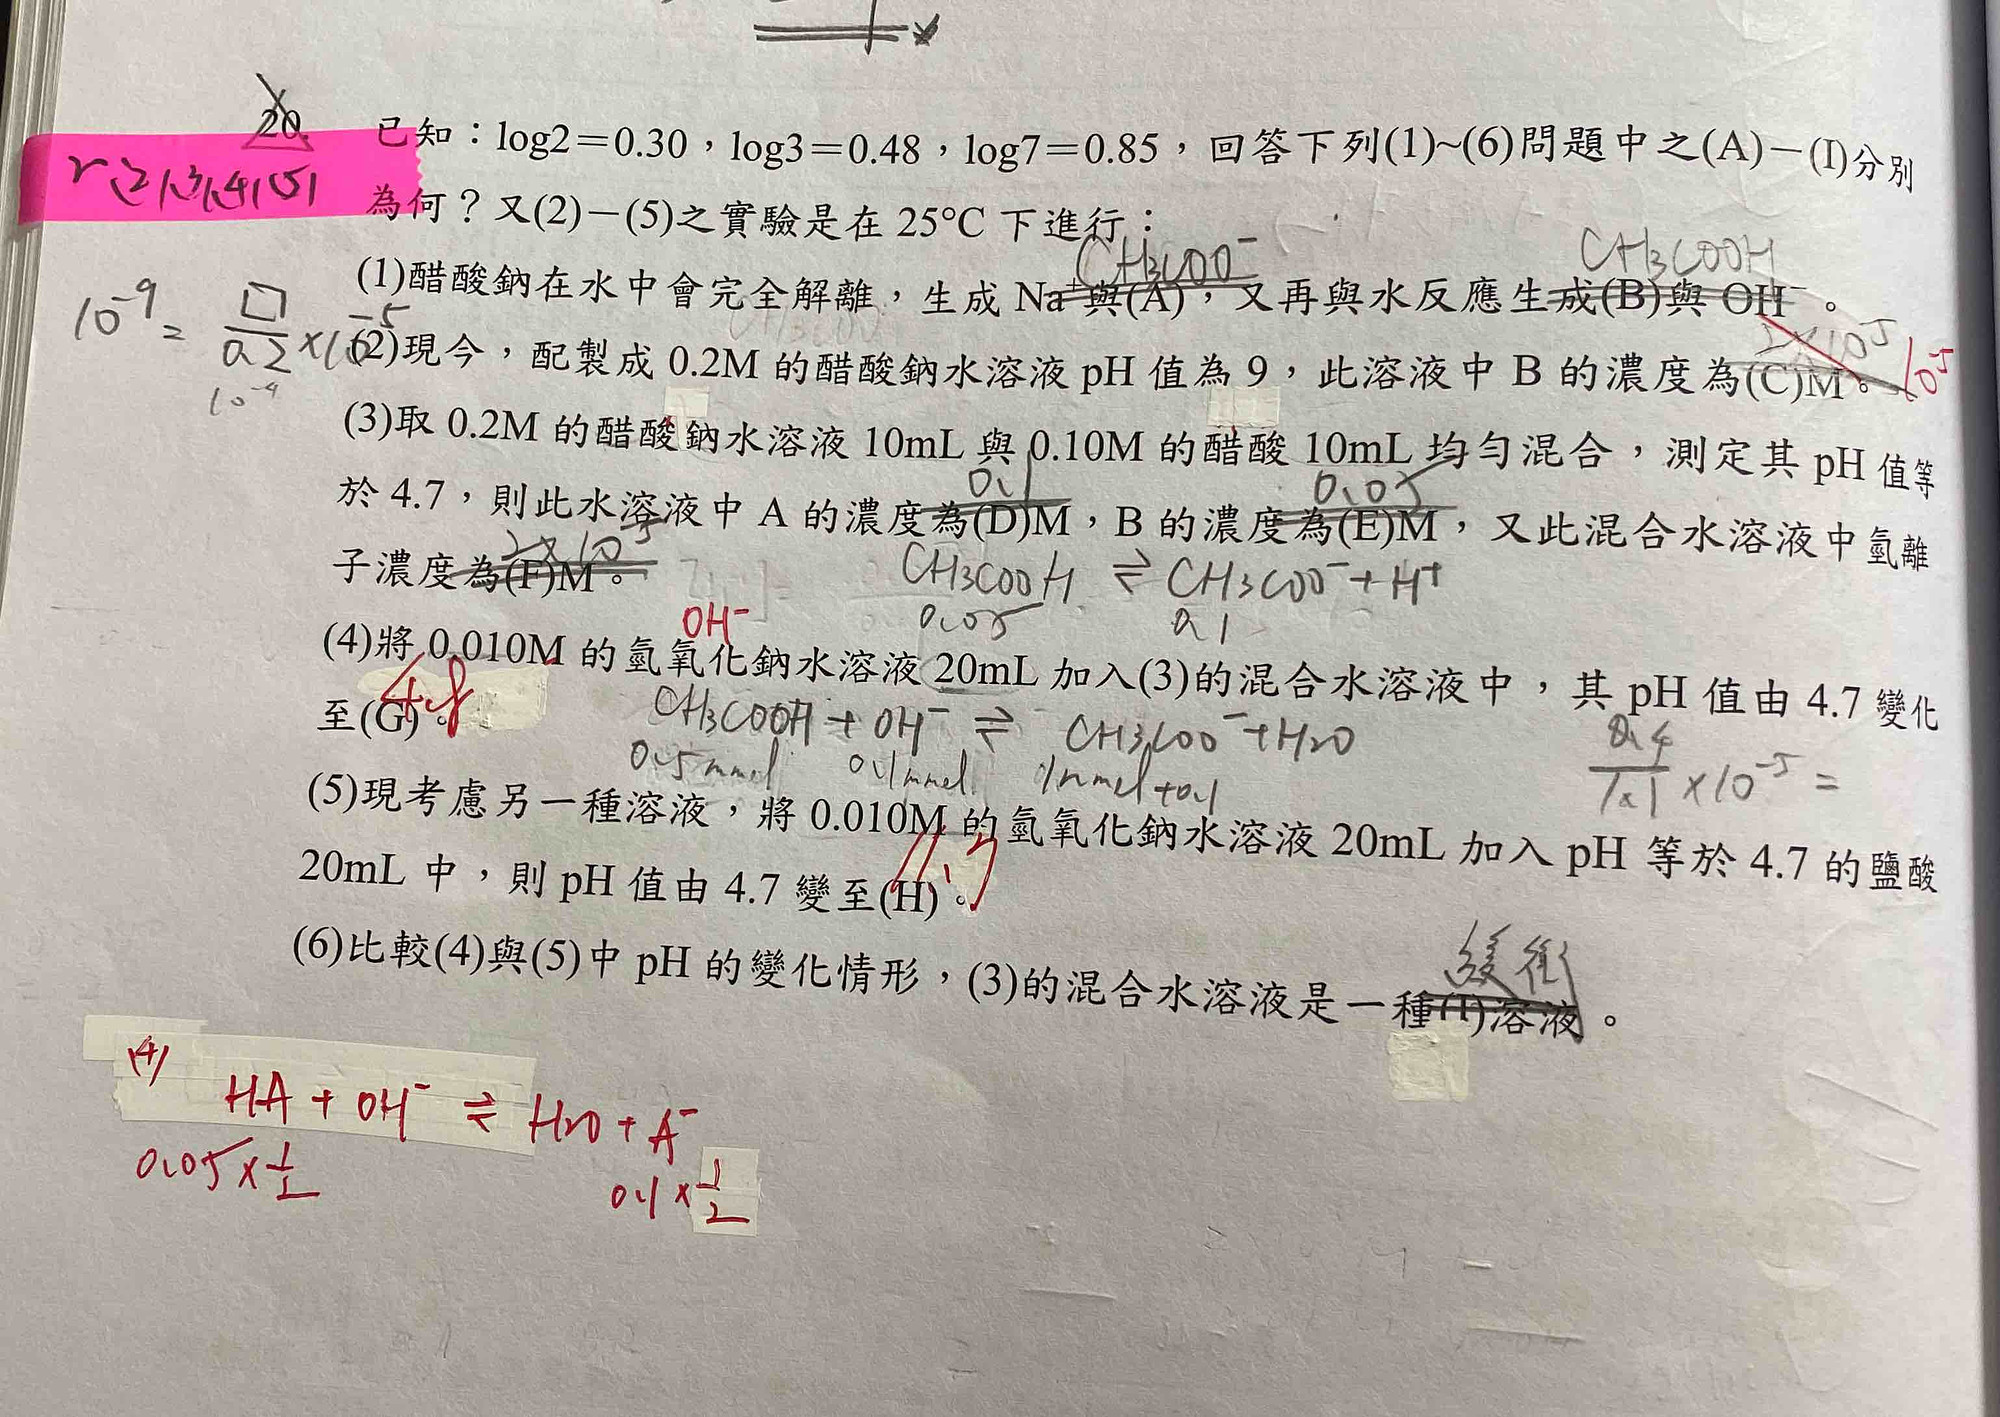 20. 已知：log2＝0.30，log3＝0.48，log7＝0.85，回答下列(1)~(6)問題中之(A)－(I)分別
r(2)(3)(4)(5)
為何？又(2)－(5)之實驗是在 25°C 下進行：
CH3COO⁻ CH3COOH
(1)醋酸鈉在水中會完全解離，生成 Na⁺與(A)，又再與水反應生成(B)與 OH⁻。
10⁻⁹ = □/0.2 × 10⁻⁵
10⁻⁴
2×10⁻⁵ 10⁻⁵
(2)現今，配製成 0.2M 的醋酸鈉水溶液 pH 值為 9，此溶液中 B 的濃度為(C)M。
(3)取 0.2M 的醋酸鈉水溶液 10mL 與 0.10M 的醋酸 10mL 均勻混合，測定其 pH 值等
0.1 0.05
於 4.7，則此水溶液中 A 的濃度為(D)M，B 的濃度為(E)M，又此混合水溶液中氫離
2×10⁻⁵
子濃度為(F)M。
CH3COOH ⇌ CH3COO⁻ + H⁺
0.05 0.1
OH⁻
(4)將 0.010M 的氫氧化鈉水溶液 20mL 加入(3)的混合水溶液中，其 pH 值由 4.7 變化
至(G)。
4.8
CH3COOH + OH⁻ ⇌ CH3COO⁻ + H2O
0.5mmol 0.1mmol 1mmol+0.1
0.4/1.1 × 10⁻⁵ =
(5)現考慮另一種溶液，將 0.010M 的氫氧化鈉水溶液 20mL 加入 pH 等於 4.7 的鹽酸
11.7
20mL 中，則 pH 值由 4.7 變至(H)。
緩衝
(6)比較(4)與(5)中 pH 的變化情形，(3)的混合水溶液是一種(I)溶液。
(4)
HA + OH⁻ ⇌ H2O + A⁻
0.05×1/2 0.1×1/2